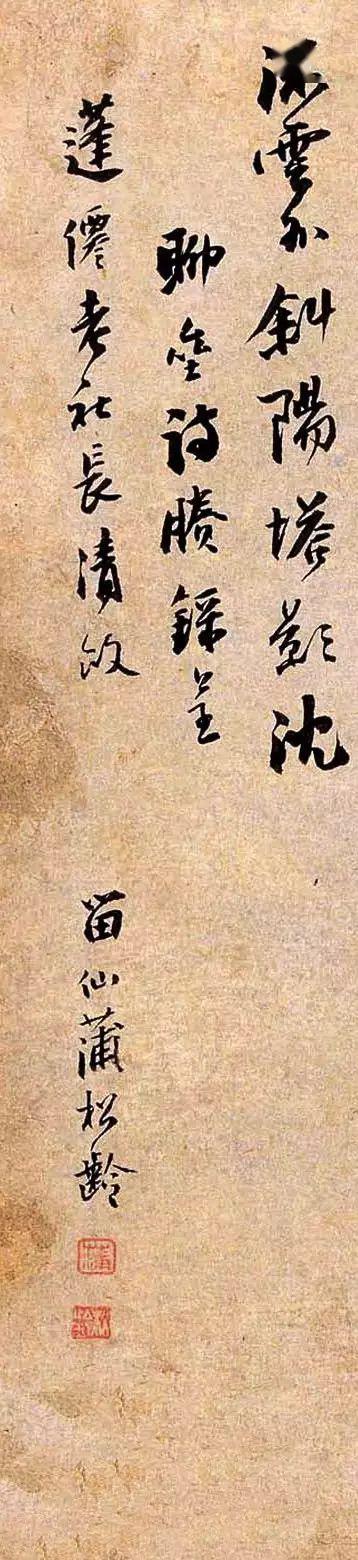 雲外斜陽塔影沈
聊齋詩賸錄呈
蓬僊老社長清政
留仙蒲松齡